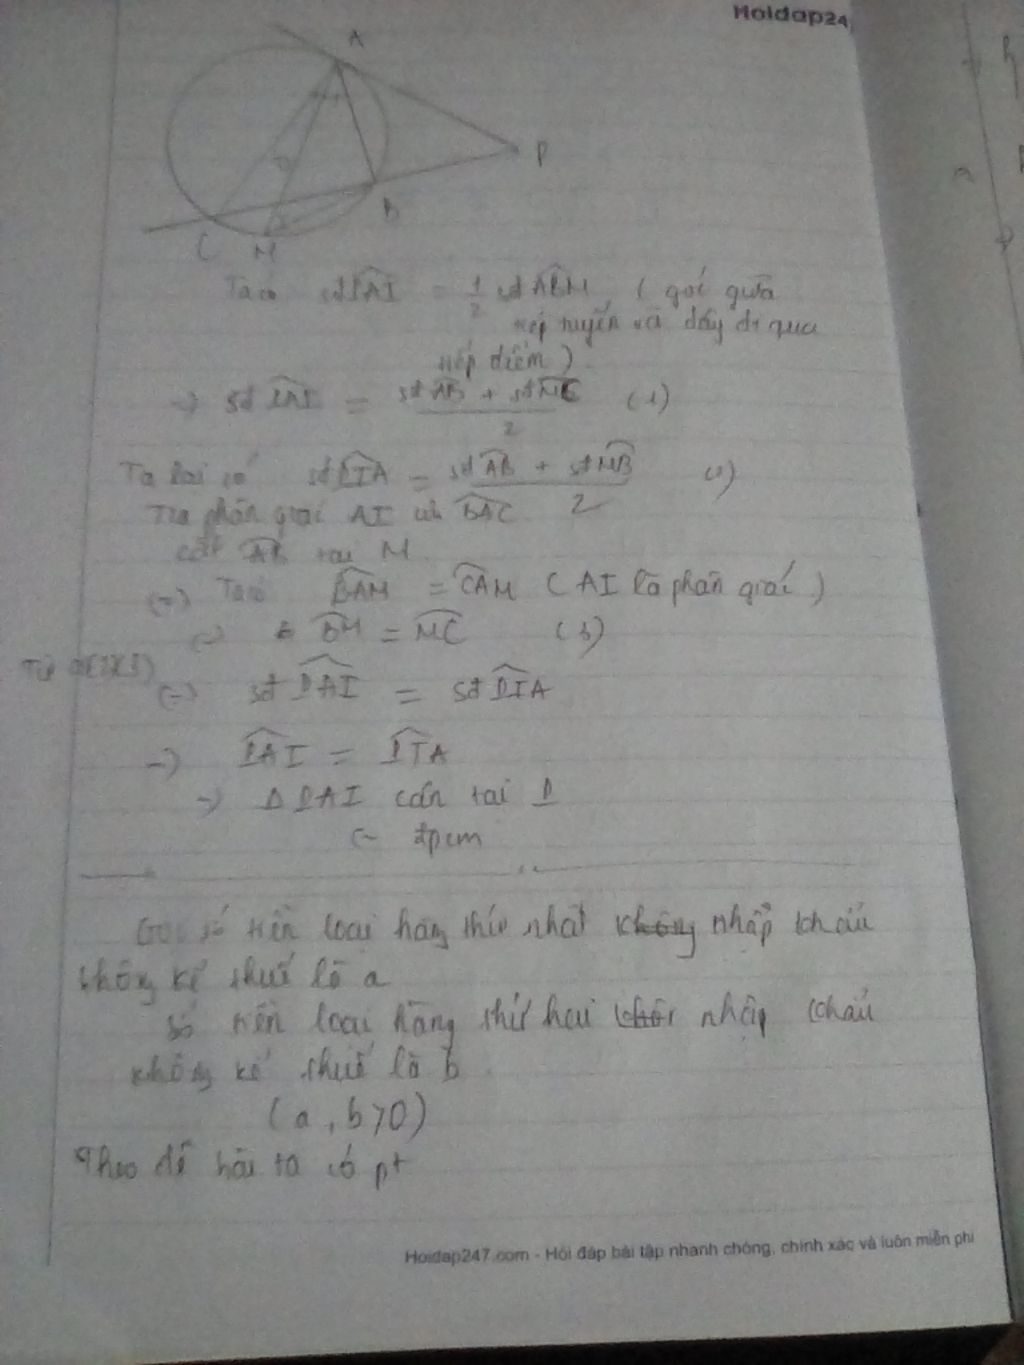 Hoidap24
A
P
B
C M
Ta có sđ PAI = 1/2 sđ ABM ( góc giữa
tiếp tuyến và dây đi qua
tiếp điểm )
=> sđ PAI = sđ AB + sđ MC / 2 (1)
Ta lại có sđ PIA = sđ AB + sđ MB / 2
Tia phân giác AI của BAC
cắt tại M
Ta có BAM = CAM ( AI là phân giác )
BM = MC (3)
Từ
sđ PAI = sđ PIA
=> PAI = PIA
=> Δ PAI cân tại P
đpcm
Gọi số tiền loại hàng thứ nhất không nhập khẩu
không kể thuế là a
số tiền loại hàng thứ hai nhập khẩu
không kể thuế là b
( a , b > 0 )
Theo đề bài ta có pt
Hoidap247.com - Hỏi đáp bài tập nhanh chóng, chính xác và luôn miễn phí